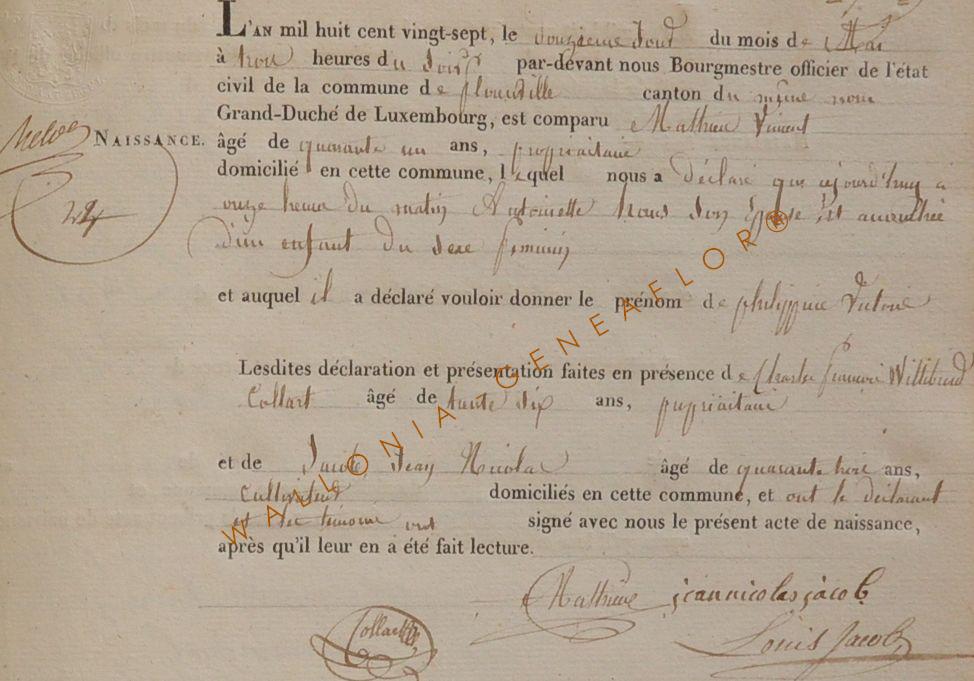 L'AN mil huit cent vingt-sept, le douzieme jour du mois de Mai
à trois heures du soir par-devant nous Bourgmestre officier de l'état
civil de la commune de florenville canton du même nom
Grand-Duché de Luxembourg, est comparu Mathieu Vincent
NAISSANCE. âgé de quarante un ans, propriétaire
24
domicilié en cette commune, lequel nous a déclaré que aujourd'huy à
onze heures du matin Antoinette son Epouse est accouchée
d'un enfant du sexe feminin
et auquel il a déclaré vouloir donner le prénom de philippine Victoire
Lesdites déclaration et présentation faites en présence de Charles francois Willibrord
Collart âgé de trente six ans, propriétaire
et de Jacob Jean Nicolas âgé de quarante trois ans,
Cultivateur domiciliés en cette commune, et ont le déclarant
et les témoins ont signé avec nous le présent acte de naissance,
après qu'il leur en a été fait lecture.
Mathieu jeannicolas jacob
Collart
Louis Jacob
WALLONIA GENEAFLOR ®